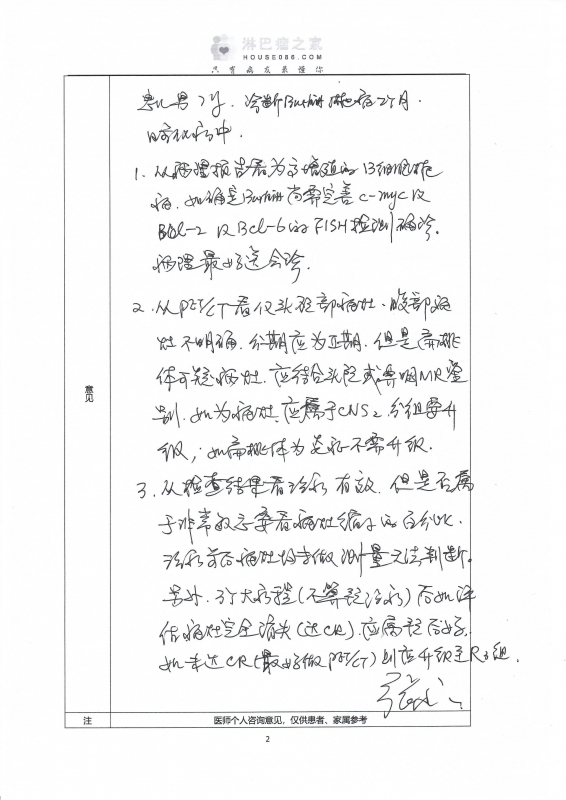 淋巴瘤之家
HOUSE086.COM
只有病友最懂你
患儿男7岁,诊断Burkitt淋巴瘤2个月.
治疗中.
1. 从病理报告看为高增殖的B细胞淋巴
瘤,如确定Burkitt尚需完善c-myc及
Bcl-2及Bcl-6的FISH检测确诊.
病理最好送会诊.
2. 从PET/CT看仅头颈部病灶、腹部病
灶不明确.分期应为II期.但是扁桃
体可疑病灶.应结合头颅或鼻咽MR鉴
别.如为病灶,应属于CNS2,分组要升
级,如扁桃体为炎症不需升级.
3. 从检查结果看治疗有效.但是否属
于非常敏感要看病灶缩小的百分比.
治疗前后病灶均未做测量无法判断.
另外.3个大疗程(不算预治疗)后如评
估病灶完全消失(达CR).应属预后好,
如未达CR(最好做PET/CT)则应升级至R3组.
意见
注
医师个人咨询意见,仅供患者、家属参考
2